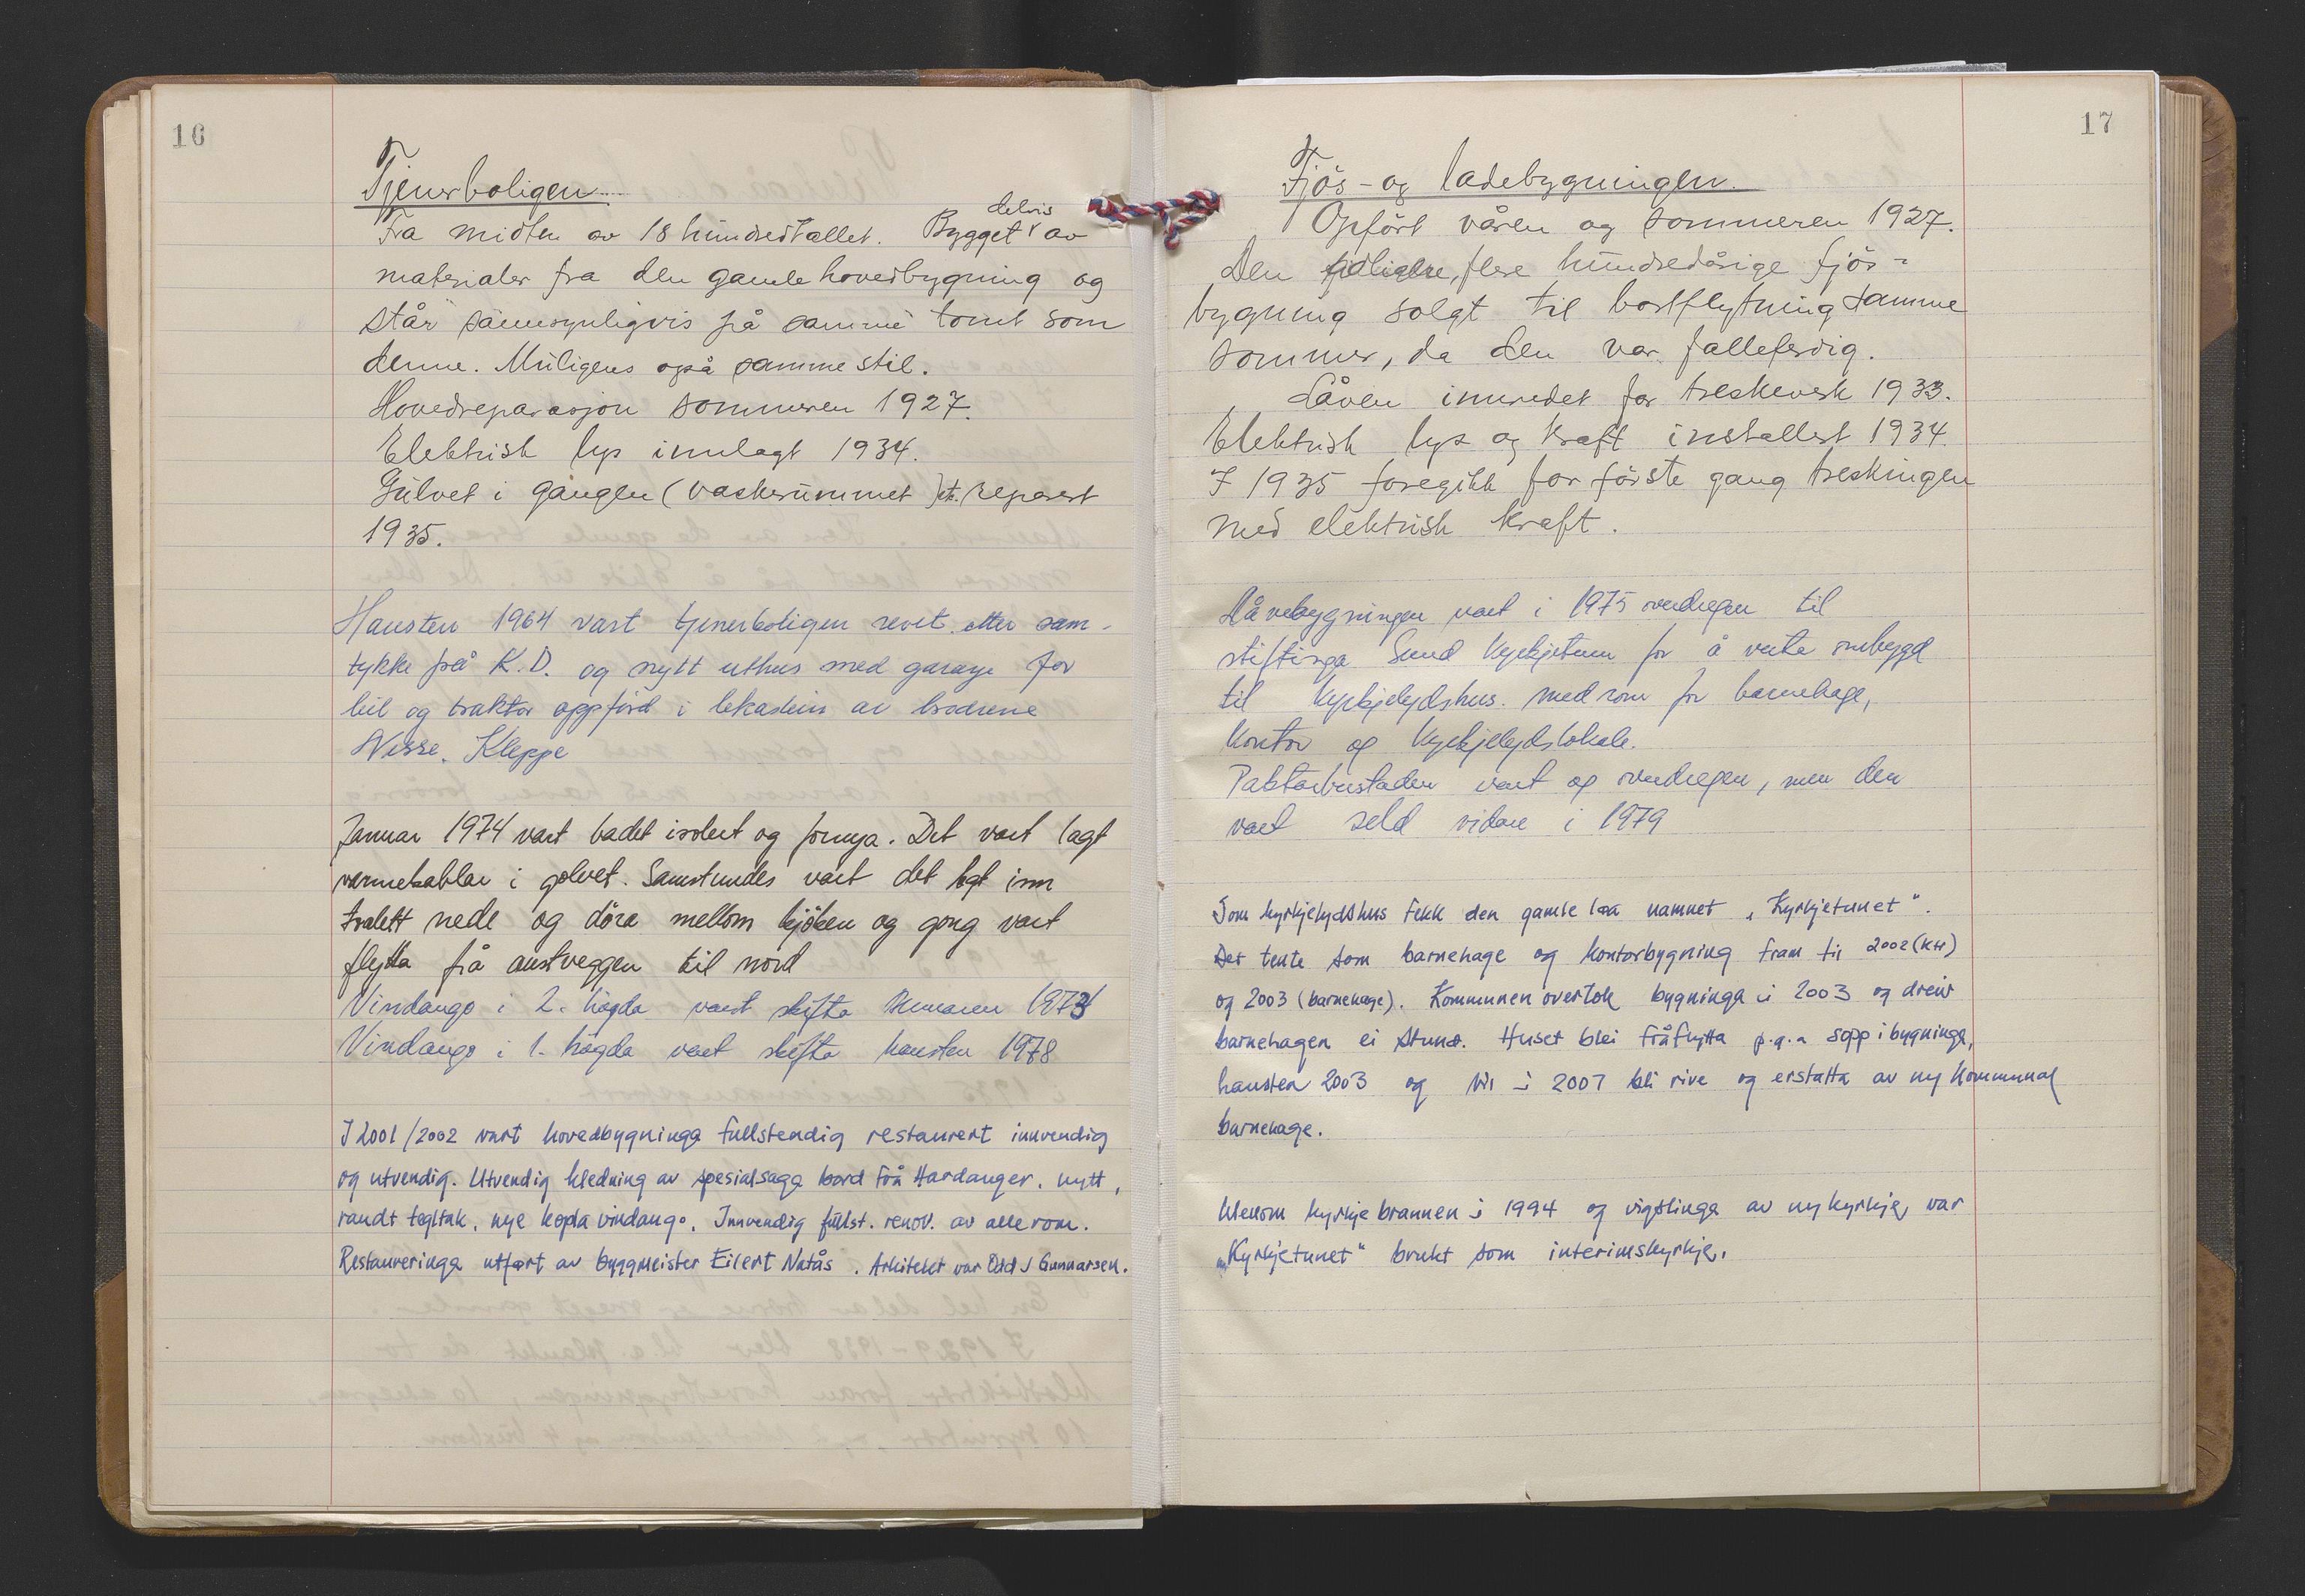 16
Tjenerboligen.
Fra midten av 18 hundredtallet. Bygget delvis av
materialer fra den gamle hovedbygning og
står sannsynligvis på samme tomt som
denne. Muligens også samme stil.
Hovedreparasjon sommeren 1927.
Elektrisk lys innlagt 1934.
Gulvet i gangen (vaskerummet) etc. reparert
1935.
Hausten 1964 vart tjenerboligen revet etter sam-
tykke frå K.D. og nytt uthus med garage for
bil og traktor oppförd i lekastein av brødrene
Nesse, Kleppe
Januar 1974 vart badet isolert og fornya. Det vart lagt
varmekablar i golvet. Samstundes vart det lagt inn
toalett nede og döra mellom kjöken og gong vart
flytta frå austveggen til nord
Vindaugo i 2. högda vart skifta sumaren 1973
Vindaugo i 1. högda vart skifta hausten 1978
I 2001/2002 vart hovedbygninga fullstendig restaurert innvendig
og utvendig. Utvendig kledning av spesialsaga bord frå Hardanger, nytt,
raudt tegltak, nye kopla vindaugo. Innvendig fullst. renov. av alle rom.
Restaureringa utført av byggmeister Eilert Natås. Arkitekt var Odd J Gunnarsen.
17
Fjös- og ladebygningen.
Opfört våren og sommeren 1927.
Den tidligere, flere hundredårige fjös-
bygning solgt til bortflytning samme
sommer, da den var falleferdig.
Låven innredet for treskeverk 1933.
Elektrisk lys og kraft installert 1934.
I 1935 foregikk for förste gang treskingen
med elektrisk kraft.
Låvebygningen vart i 1975 overdregen til
stiftinga Sund kyrkjetun for å verta ombygd
til kyrkjelydshus med rom for barnehage,
kontor og kyrkjelydslokale.
Paktarbustaden vart og overdregen, men den
vart seld vidare i 1979
Som kyrkjelydshus fekk den gamle løa namnet "Kyrkjetunet".
Det tente som barnehage og kontorbygning fram til 2002 (KH)
og 2003 (barnehage). Kommunen overtok bygninga i 2003 og dreiv
barnehagen ei stund. Huset blei fråflytta p.g.a sopp i bygninga,
hausten 2003 og vil i 2007 bli rive og erstatta av ny kommunal
barnehage.
Mellom kyrkjebrannen i 1994 og vigslinga av ny kyrkje, var
"Kyrkjetunet" brukt som interimskyrkje.